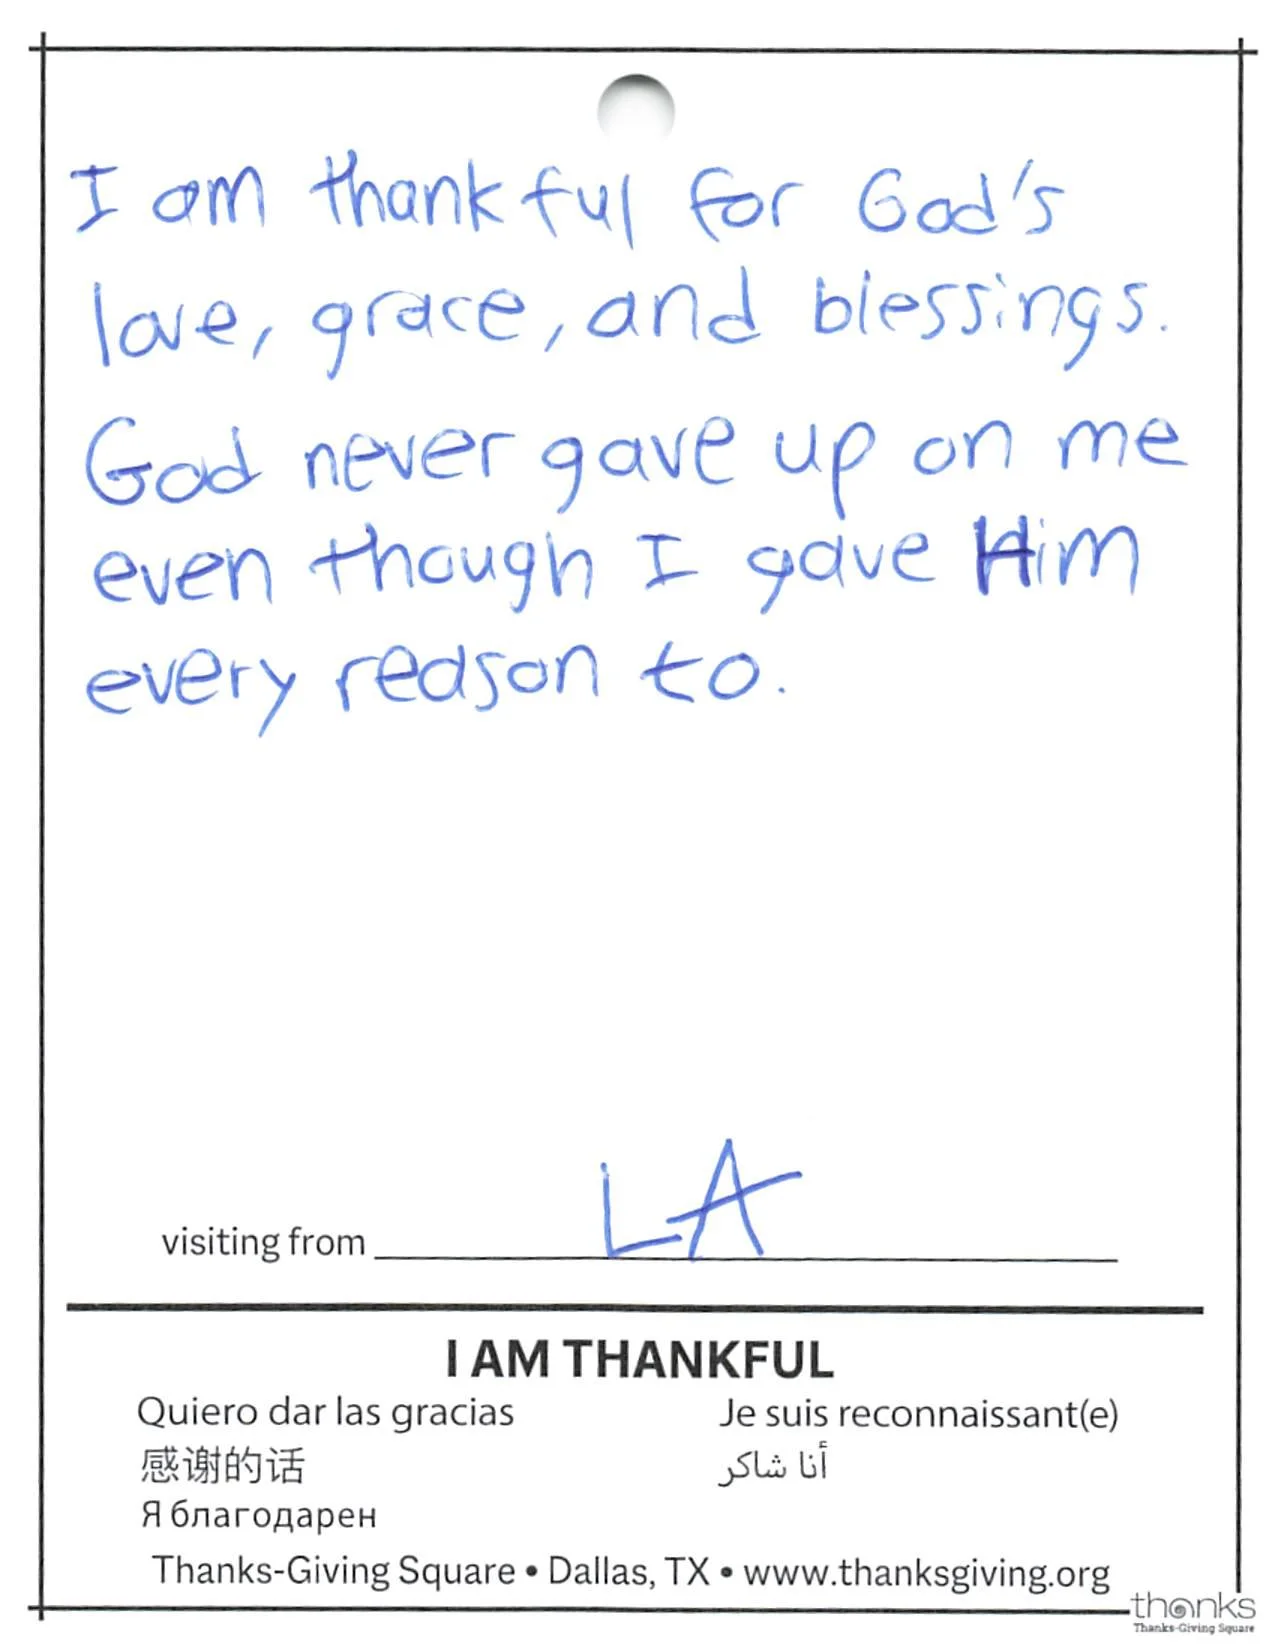 I am thankful for God's
love, grace, and blessings.
God never gave up on me
even though I gave Him
every reason to.
visiting from LA
I AM THANKFUL
Quiero dar las gracias
Je suis reconnaissant(e)
感谢的话
أنا شاكر
Я благодарен
Thanks-Giving Square • Dallas, TX • www.thanksgiving.org
thanks
Thanks-Giving Square